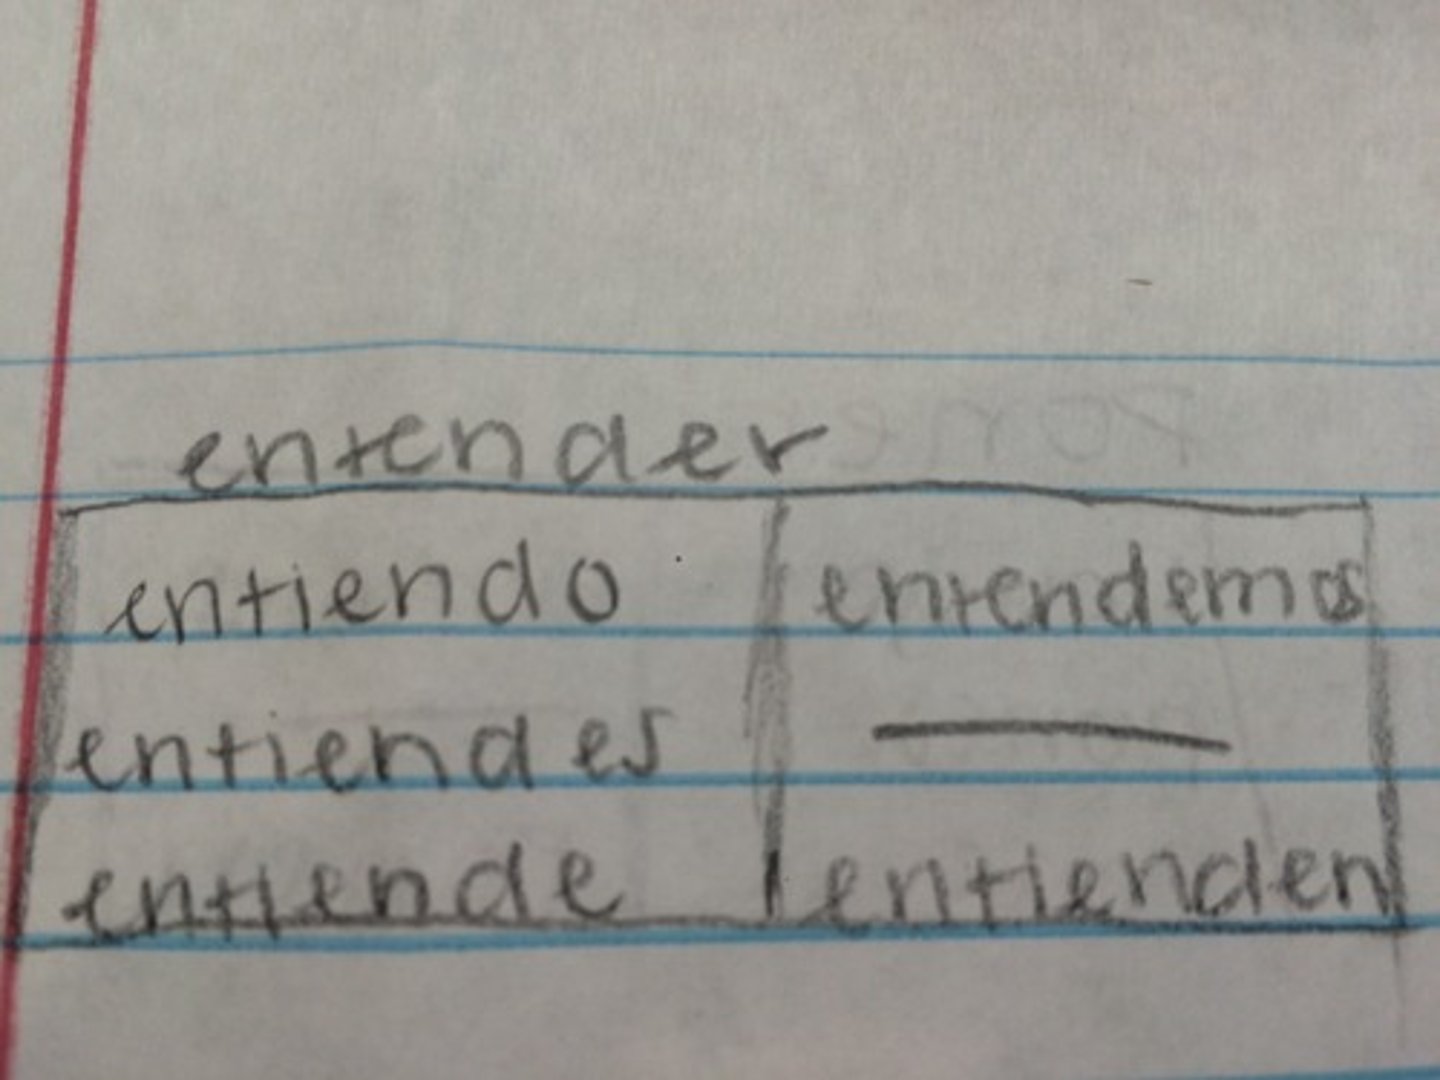 entender
entiendo entendemos
entiendes —
entiende entienden